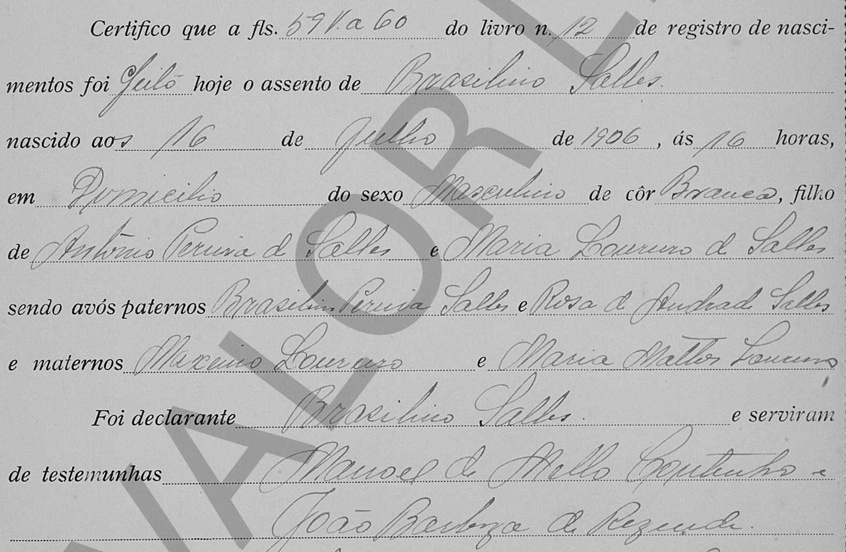 Certifico que a fls. 59V. a 60 do livro n. 12 de registro de nasci-
mentos foi feito hoje o assento de Brasilino Salles.
nascido aos 16 de Julho de 1906, ás 16 horas,
em Domicilio do sexo Masculino de côr Branca, filho
de Antônio Pereira d Salles e Maria Loureiro d Salles
sendo avós paternos Brasilino Pereira Salles e Rosa d Andrade Salles
e maternos Loureiro e Maria Mattos Loureiro
Foi declarante Brasilino Salles. e serviram
de testemunhas Manoel de Mello Coutinho e
João Barboza de Rezende.
VALOR